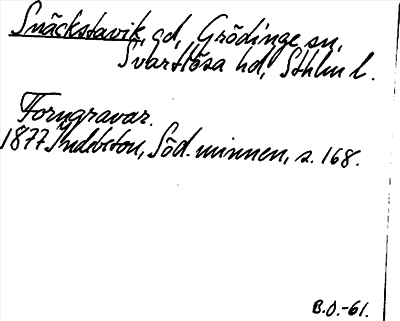 Snäckstavik, gd, Grödinge sn,
Svartlösa hd, Sthlm l.
Forngravar.
1877 Indebetou, Söd. minnen, s. 168.
B.O.-61.